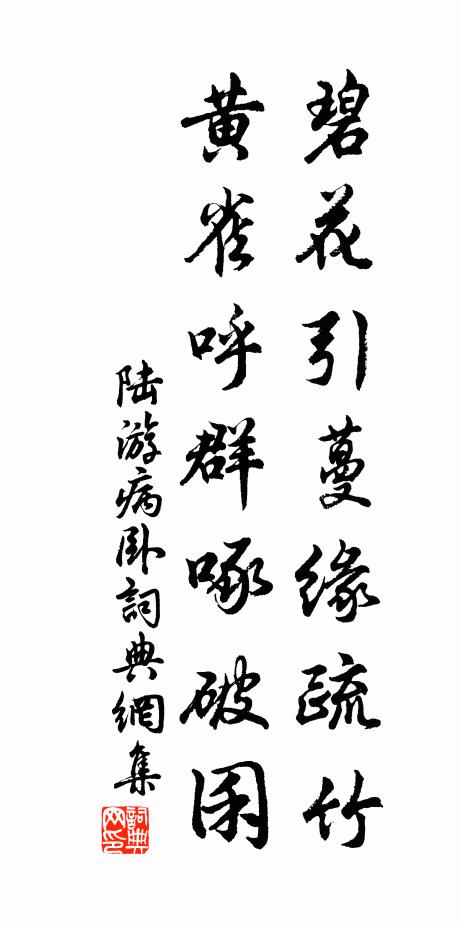 碧花引蔓缘疏竹
黄雀呼群啄破囷
陆游病卧詞典網集
詞典网印